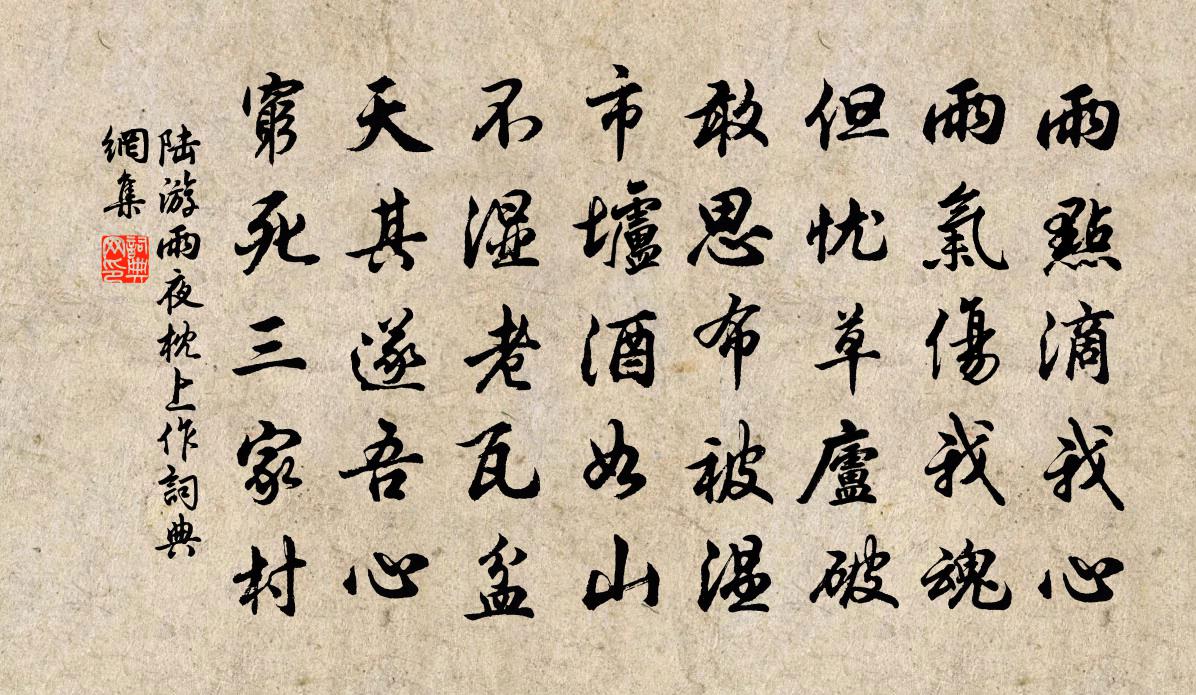 雨點滴我心
雨氣傷我魂
但忧草廬破
敢思布被温
市壚酒如山
不濕老瓦盆
天其遂吾心
窮死三家村
陆游雨夜枕上作詞典
網集
詞典
网印